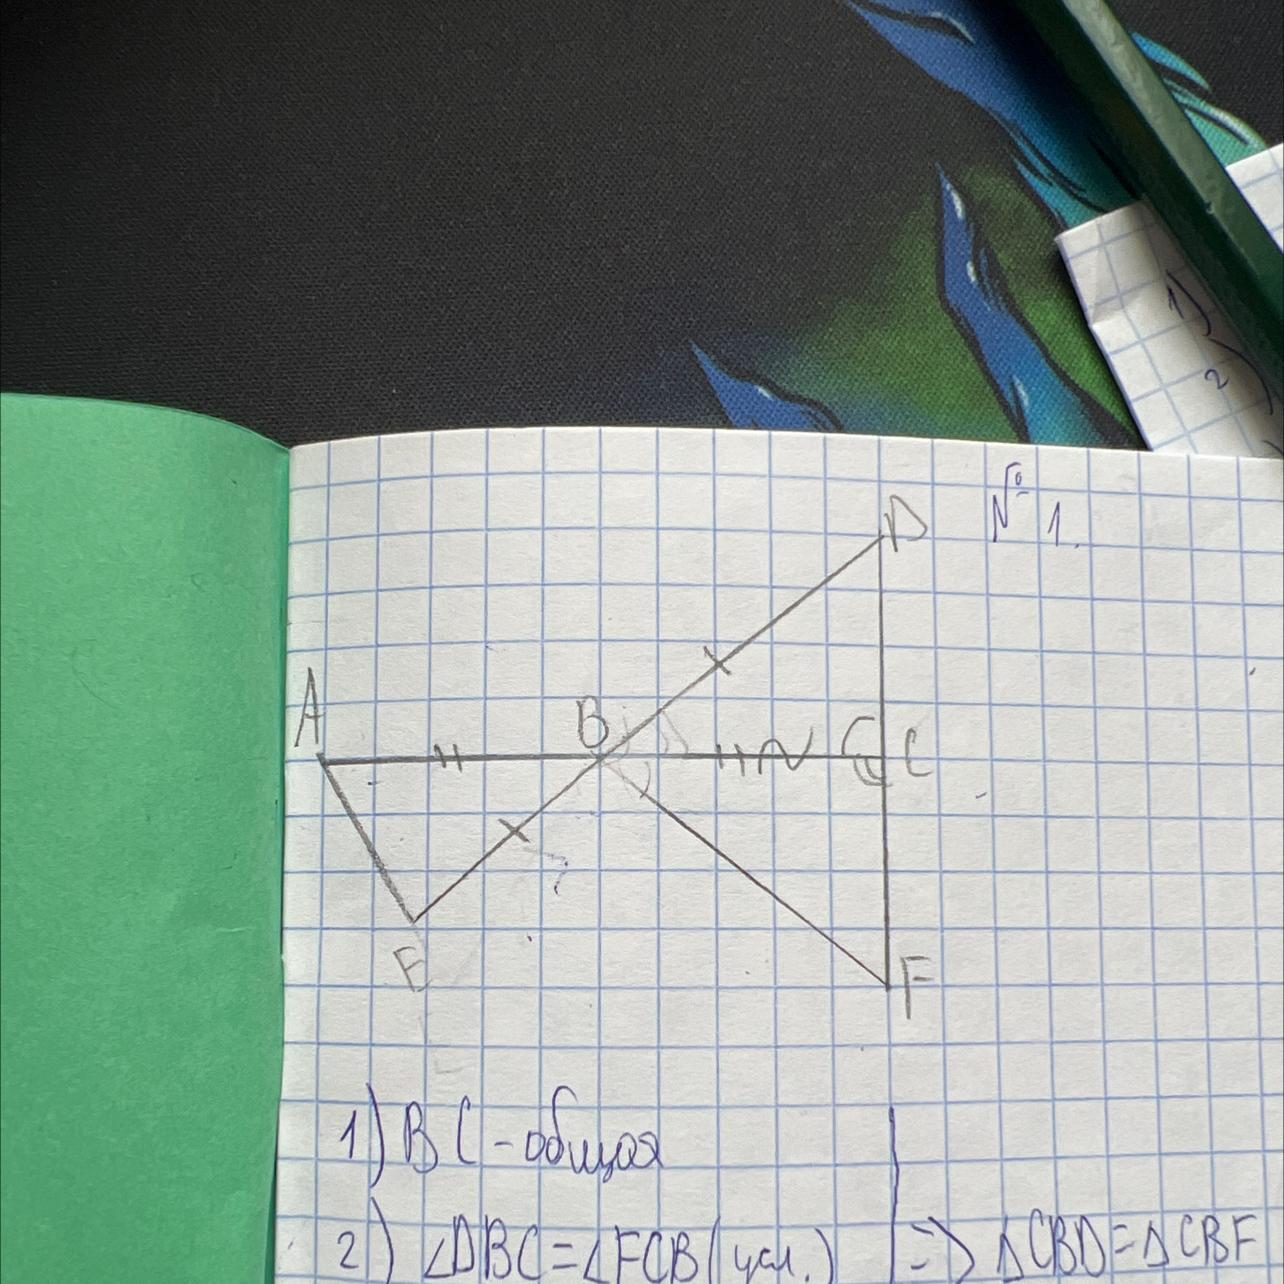 № 1.
D
A
B
C
E
F
1) BC - общая
2) ∠DBC=∠FCB (усл.) => ΔCBD=ΔCBF
1)
2)